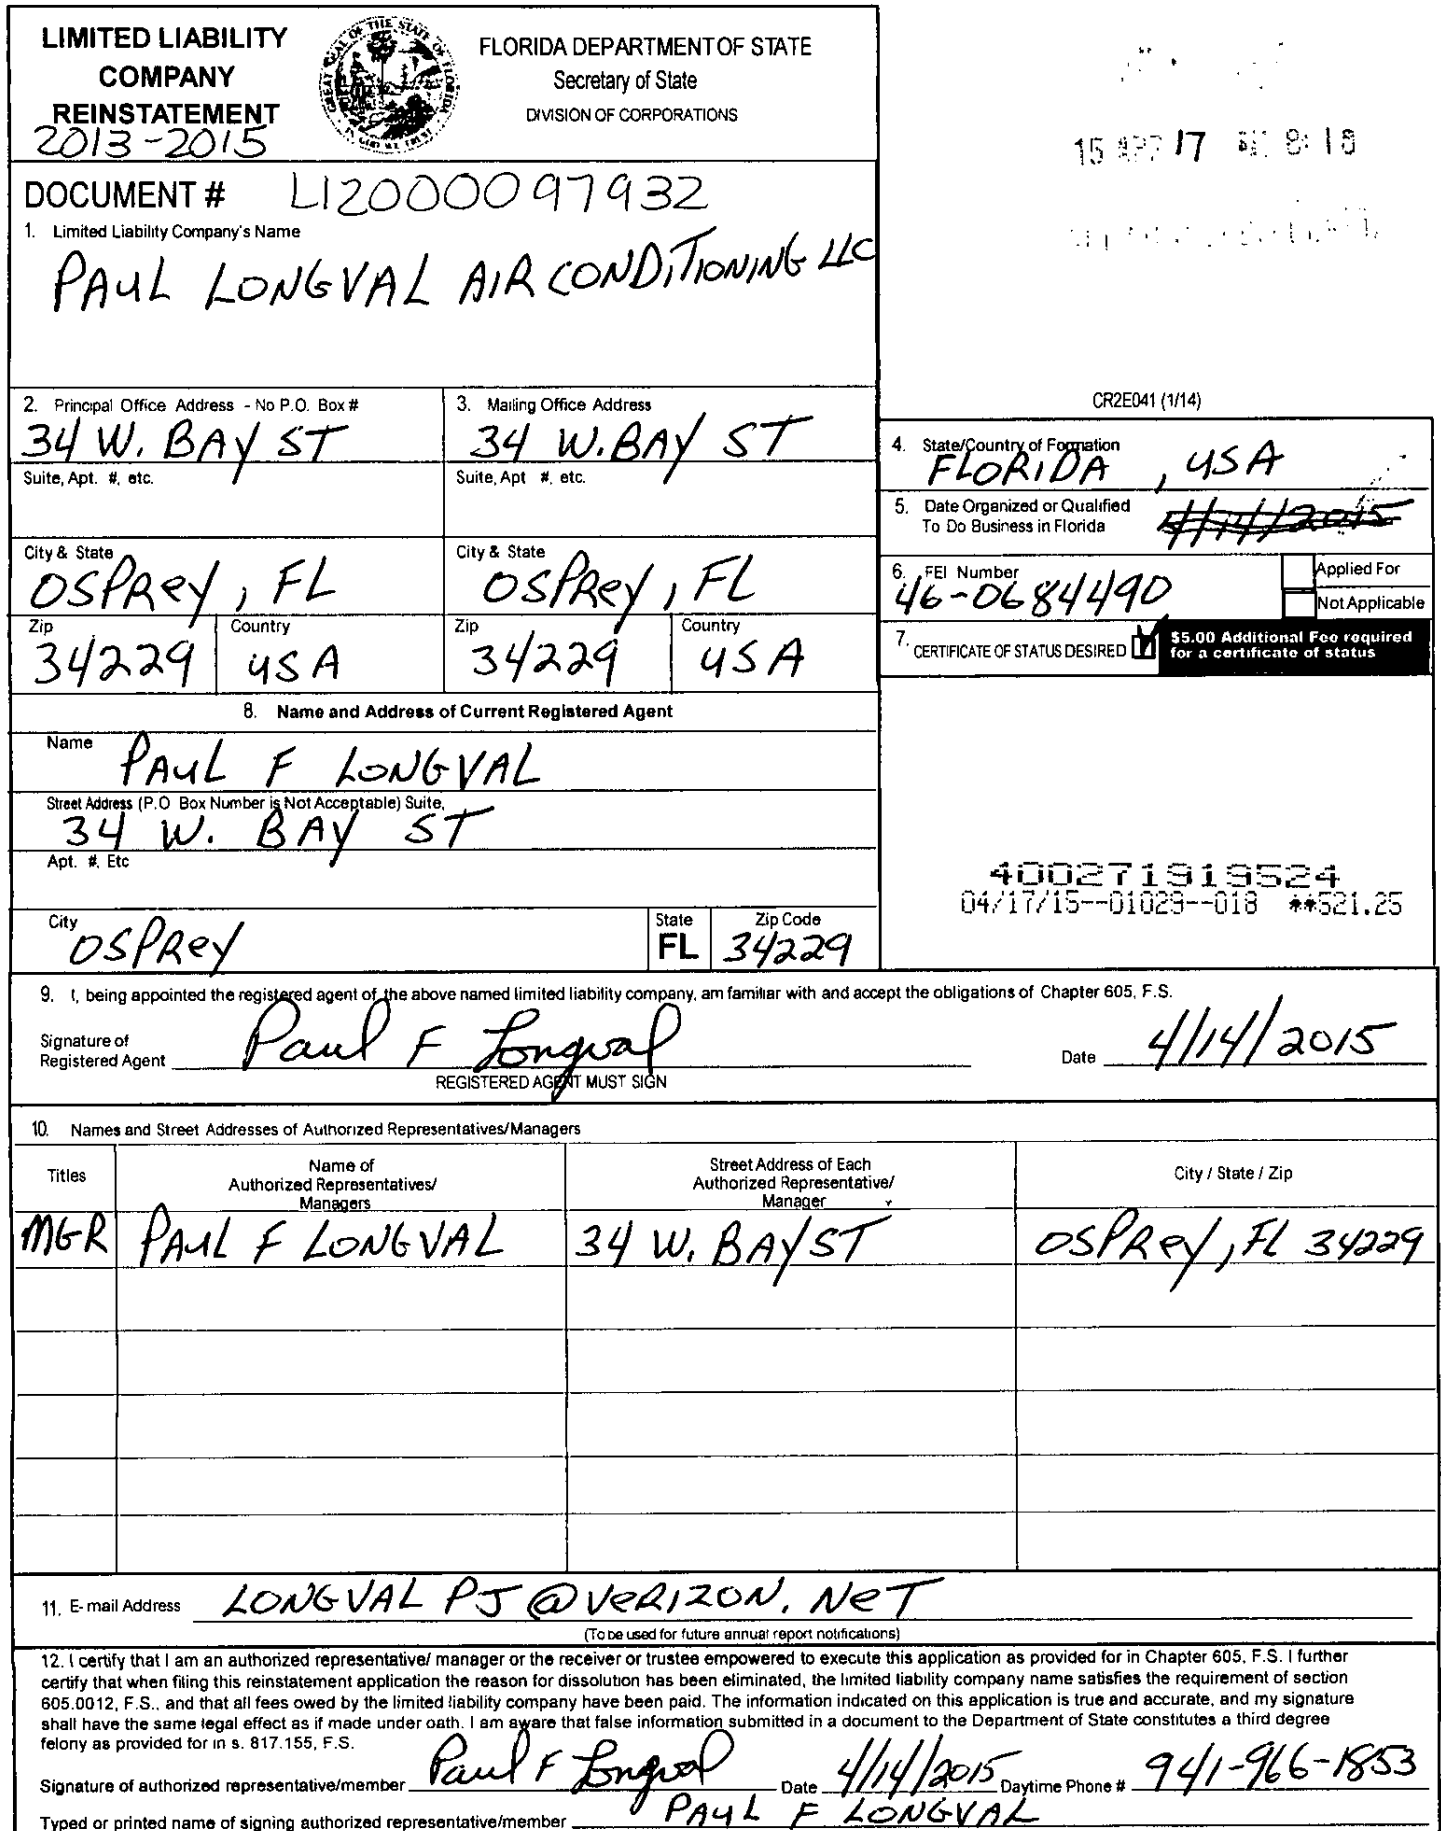 LIMITED LIABILITY
COMPANY
REINSTATEMENT
2013-2015
FLORIDA DEPARTMENT OF STATE
Secretary of State
DIVISION OF CORPORATIONS
15 17 8:18
DOCUMENT # L12000097932
1. Limited Liability Company's Name
PAUL LONGVAL AIR CONDITIONING LLC
CR2E041 (1/14)
2. Principal Office Address - No P.O. Box #
34 W. BAY ST
Suite, Apt. #, etc.
3. Mailing Office Address
34 W. BAY ST
Suite, Apt #, etc.
4. State/Country of Formation
FLORIDA, USA
5. Date Organized or Qualified
To Do Business in Florida
4/14/2015
City & State
OSPREY, FL
City & State
OSPREY, FL
6. FEI Number
46-0684490
Applied For
Not Applicable
Zip
34229
Country
USA
Zip
34229
Country
USA
7. CERTIFICATE OF STATUS DESIRED
$5.00 Additional Fee required
for a certificate of status
8. Name and Address of Current Registered Agent
Name
PAUL F LONGVAL
Street Address (P.O Box Number is Not Acceptable) Suite,
34 W. BAY ST
Apt. #, Etc
City
OSPREY
State
FL
Zip Code
34229
400271919524
04/17/15--01023--018 **521.25
9. I, being appointed the registered agent of the above named limited liability company, am familiar with and accept the obligations of Chapter 605, F.S.
Signature of
Registered Agent Paul F Longval
REGISTERED AGENT MUST SIGN
Date 4/14/2015
10. Names and Street Addresses of Authorized Representatives/Managers
Titles
Name of
Authorized Representatives/
Managers
Street Address of Each
Authorized Representative/
Manager
City / State / Zip
MGR PAUL F LONGVAL 34 W. BAY ST OSPREY, FL 34229
11. E-mail Address LONGVAL PJ@VERIZON.NET
(To be used for future annual report notifications)
12. I certify that I am an authorized representative/ manager or the receiver or trustee empowered to execute this application as provided for in Chapter 605, F.S. I further
certify that when filing this reinstatement application the reason for dissolution has been eliminated, the limited liability company name satisfies the requirement of section
605.0012, F.S., and that all fees owed by the limited liability company have been paid. The information indicated on this application is true and accurate, and my signature
shall have the same legal effect as if made under oath. I am aware that false information submitted in a document to the Department of State constitutes a third degree
felony as provided for in s. 817.155, F.S.
Signature of authorized representative/member Paul F Longval Date 4/14/2015 Daytime Phone # 941-966-1853
Typed or printed name of signing authorized representative/member PAUL F LONGVAL